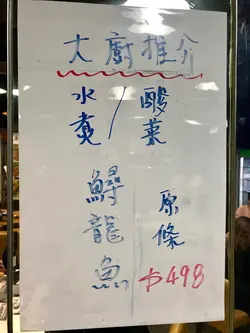 大廚推介
水煮/酸菜
鱘龍魚
原條
$498